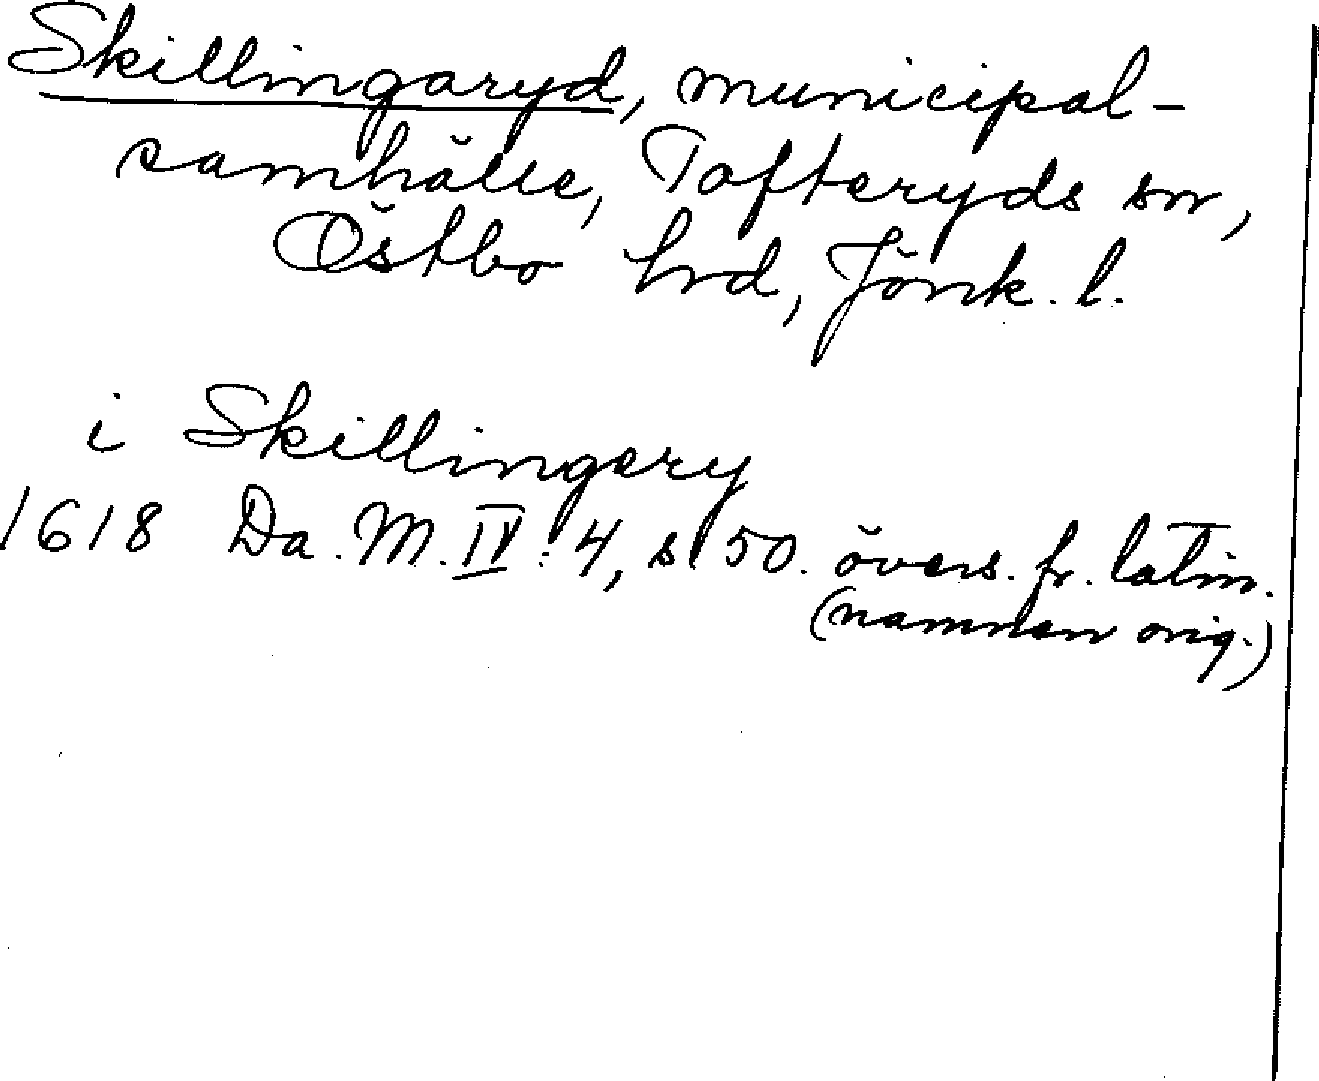 Skillingaryd, municipal-
samhälle, Tofteryds sn,
Östbo hrd, Jönk. l.
i Skillingery
1618 Da. M. IV: 4, s 50. övers. fr. latin.
(namnen orig.)